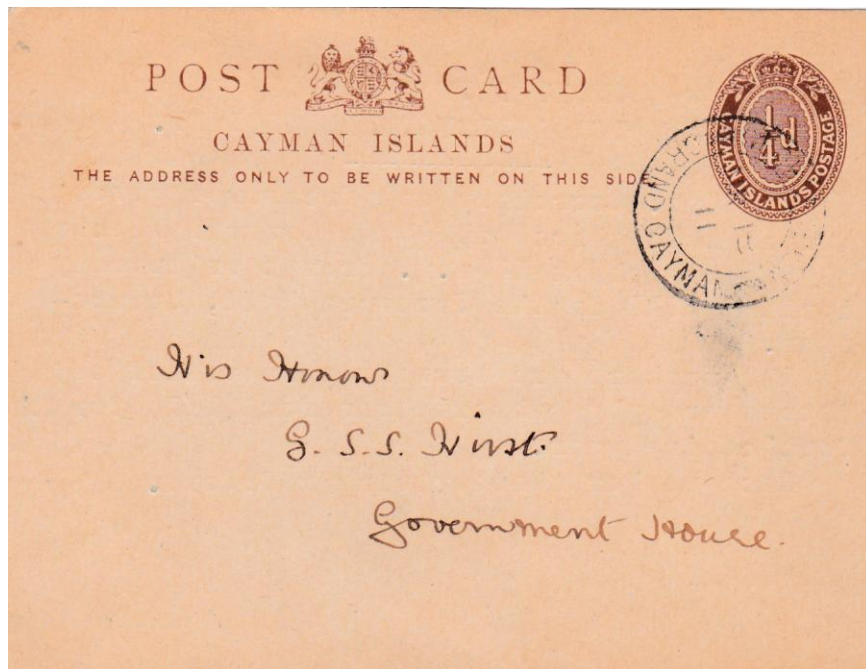 POST CARD
CAYMAN ISLANDS
THE ADDRESS ONLY TO BE WRITTEN ON THIS SIDE
1/4d
CAYMAN ISLANDS POSTAGE
GRAND CAYMAN
11
His Honour
G. S. S. Hirst.
Government House.